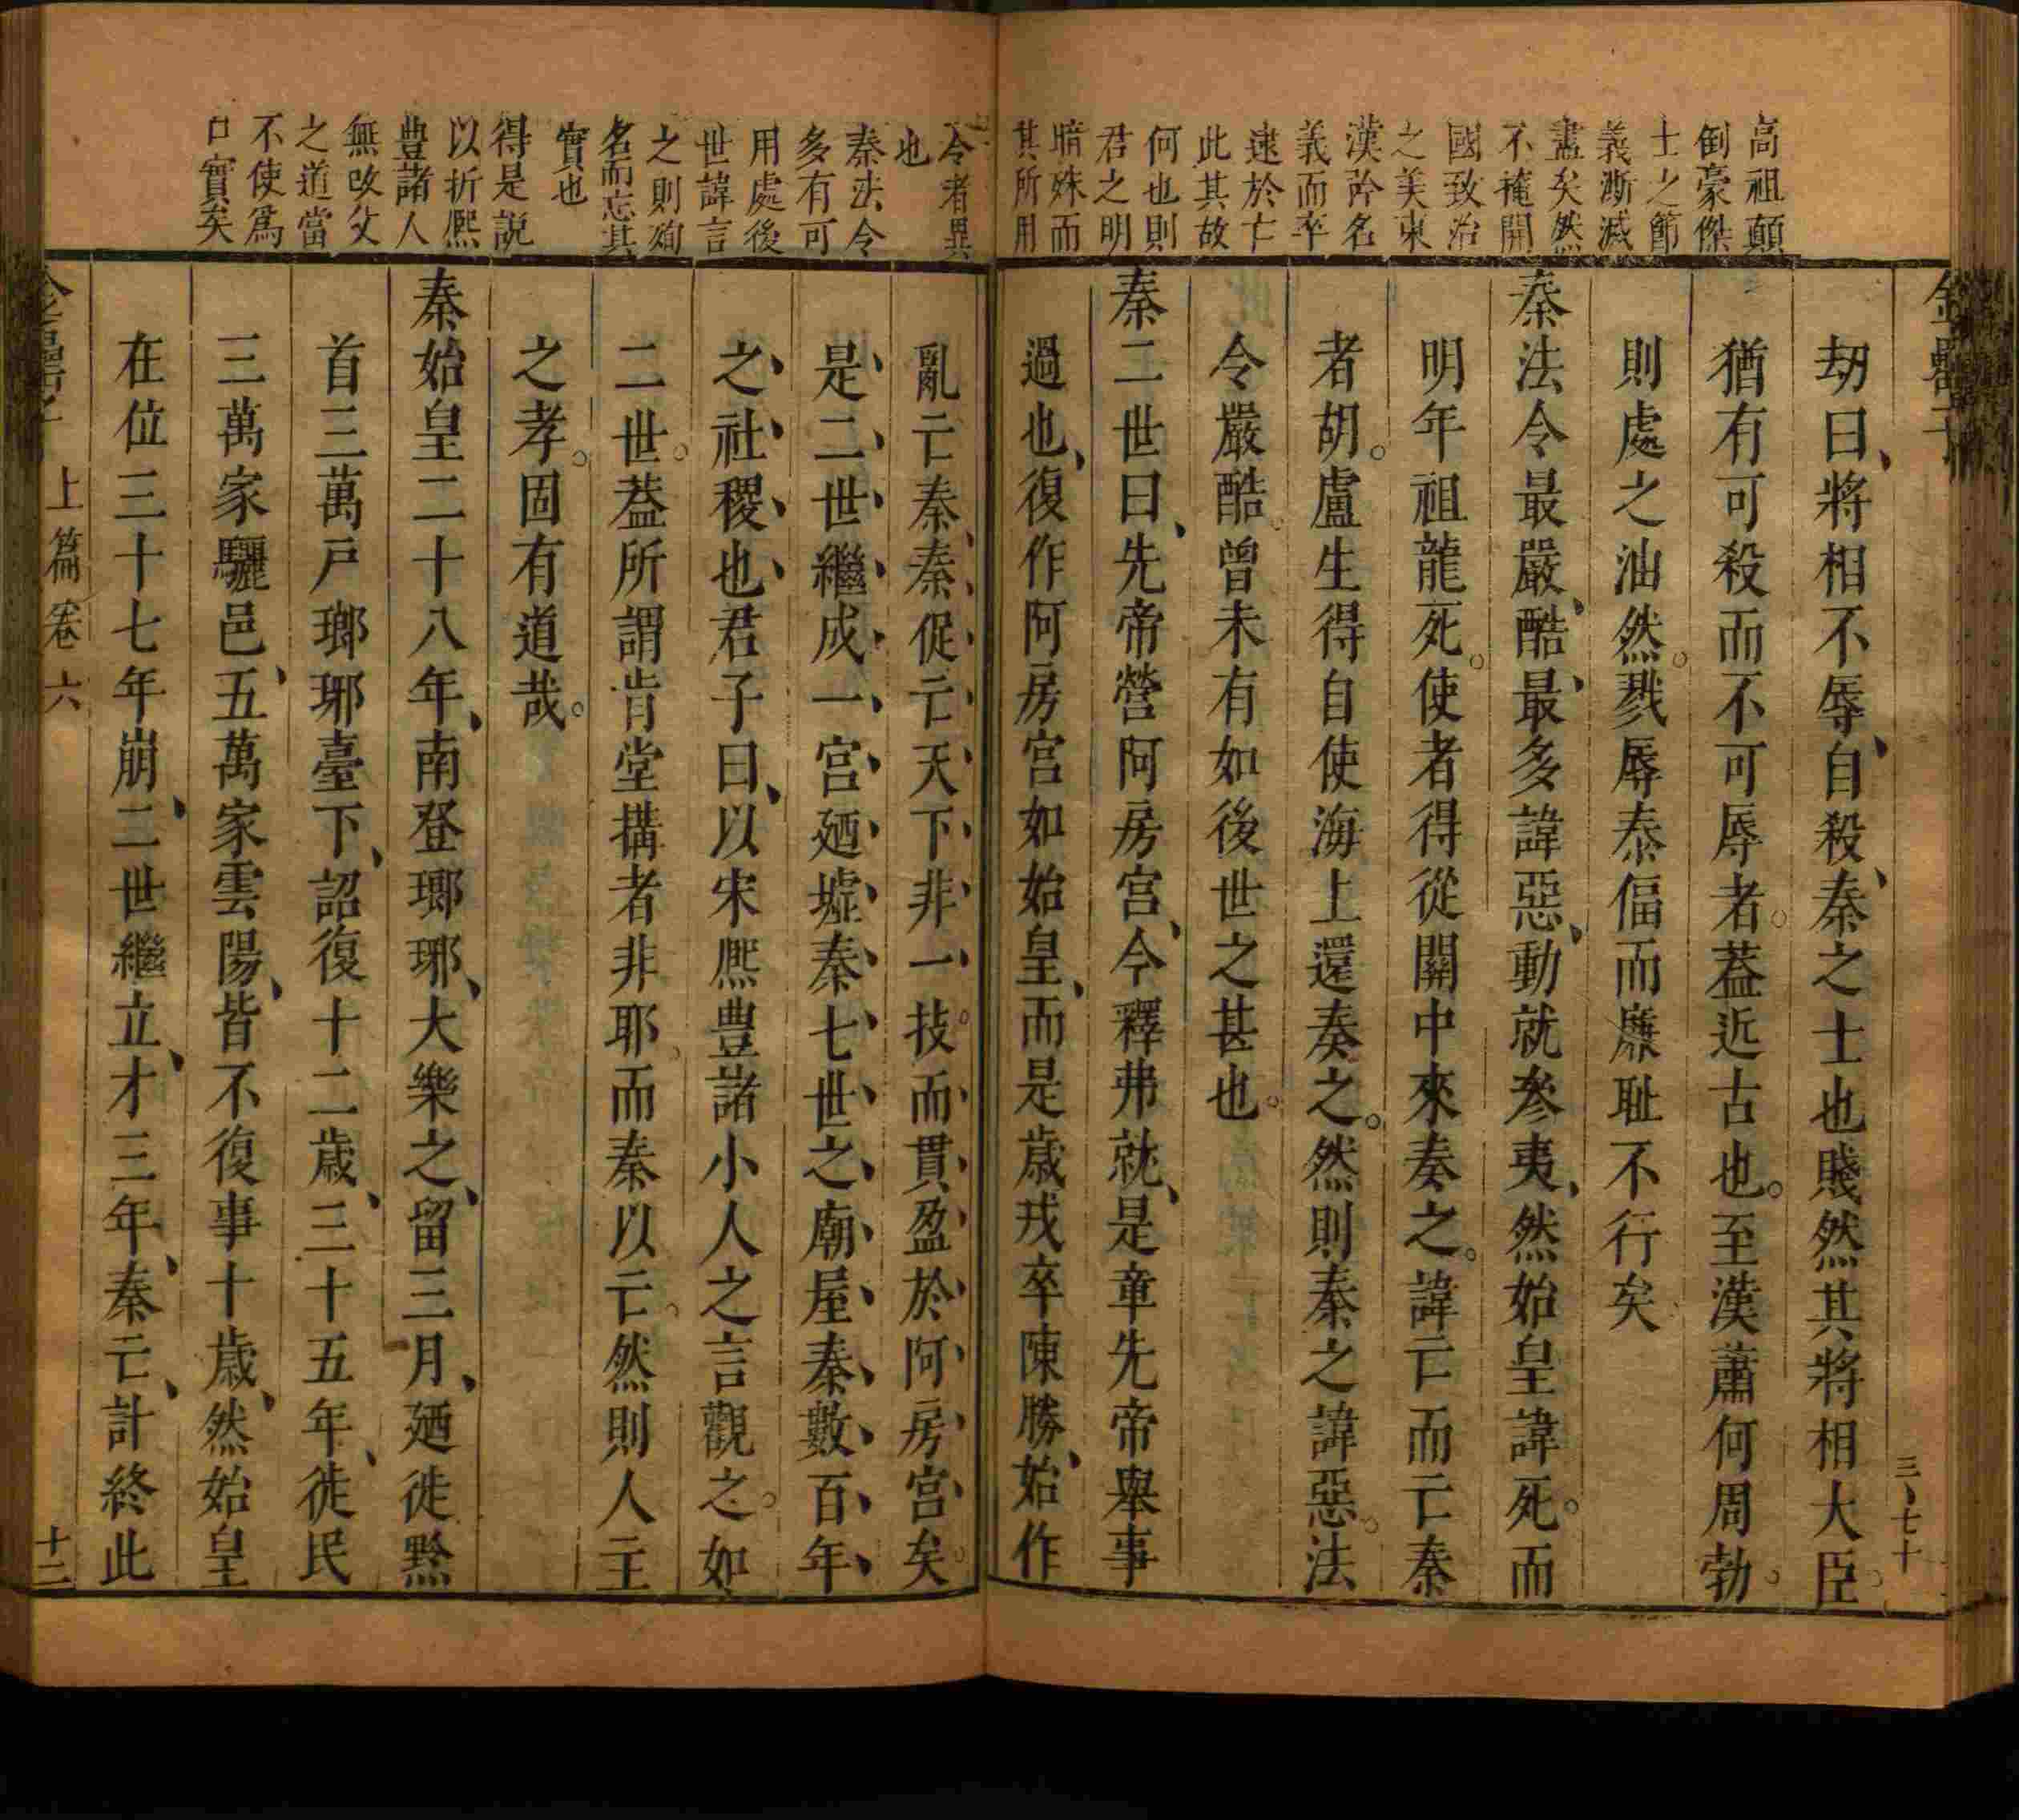 高祖顛
倒豪傑
士之節
義澌滅
盡矣然
不掩開
國致治
之美東
漢矜名
義而卒
逮於亡
此其故
何也則
君之明
暗殊而
其所用
劫曰將相不辱自殺秦之士也賤然其將相大臣
猶有可殺而不可辱者葢近古也至漢蕭何周勃
則處之油然戮辱泰偪而廉耻不行矣
秦法令最嚴酷最多諱惡動就參夷然始皇諱死而
明年祖龍死使者得從關中來奏之諱亡而亡秦
者胡盧生得自使海上還奏之然則秦之諱惡法
令嚴酷曾未有如後世之甚也
秦二世曰先帝營阿房宫今釋弗就是章先帝舉事
過也復作阿房宫如始皇而是歲戍卒陳勝始作
三七十
令者異
也
秦法令
多有可
用處後
世諱言
之則殉
名而忘其
實也
得是説
以折熈
豐諸人
無改父
之道當
不使爲
口實矣
亂亡秦秦促亡天下非一技而貫盈於阿房宫矣
是二世繼成一宫廼墟秦七世之廟屋秦數百年
之社稷也君子曰以宋熈豐諸小人之言觀之如
二世葢所謂肯堂搆者非耶而秦以亡然則人主
之孝固有道哉
秦始皇二十八年南登瑯琊大樂之留三月廼徙黔
首三萬戸瑯琊臺下詔復十二歲三十五年徙民
三萬家驪邑五萬家雲陽皆不復事十歲然始皇
在位三十七年崩二世繼立才三年秦亡計終此
上篇卷六
十二